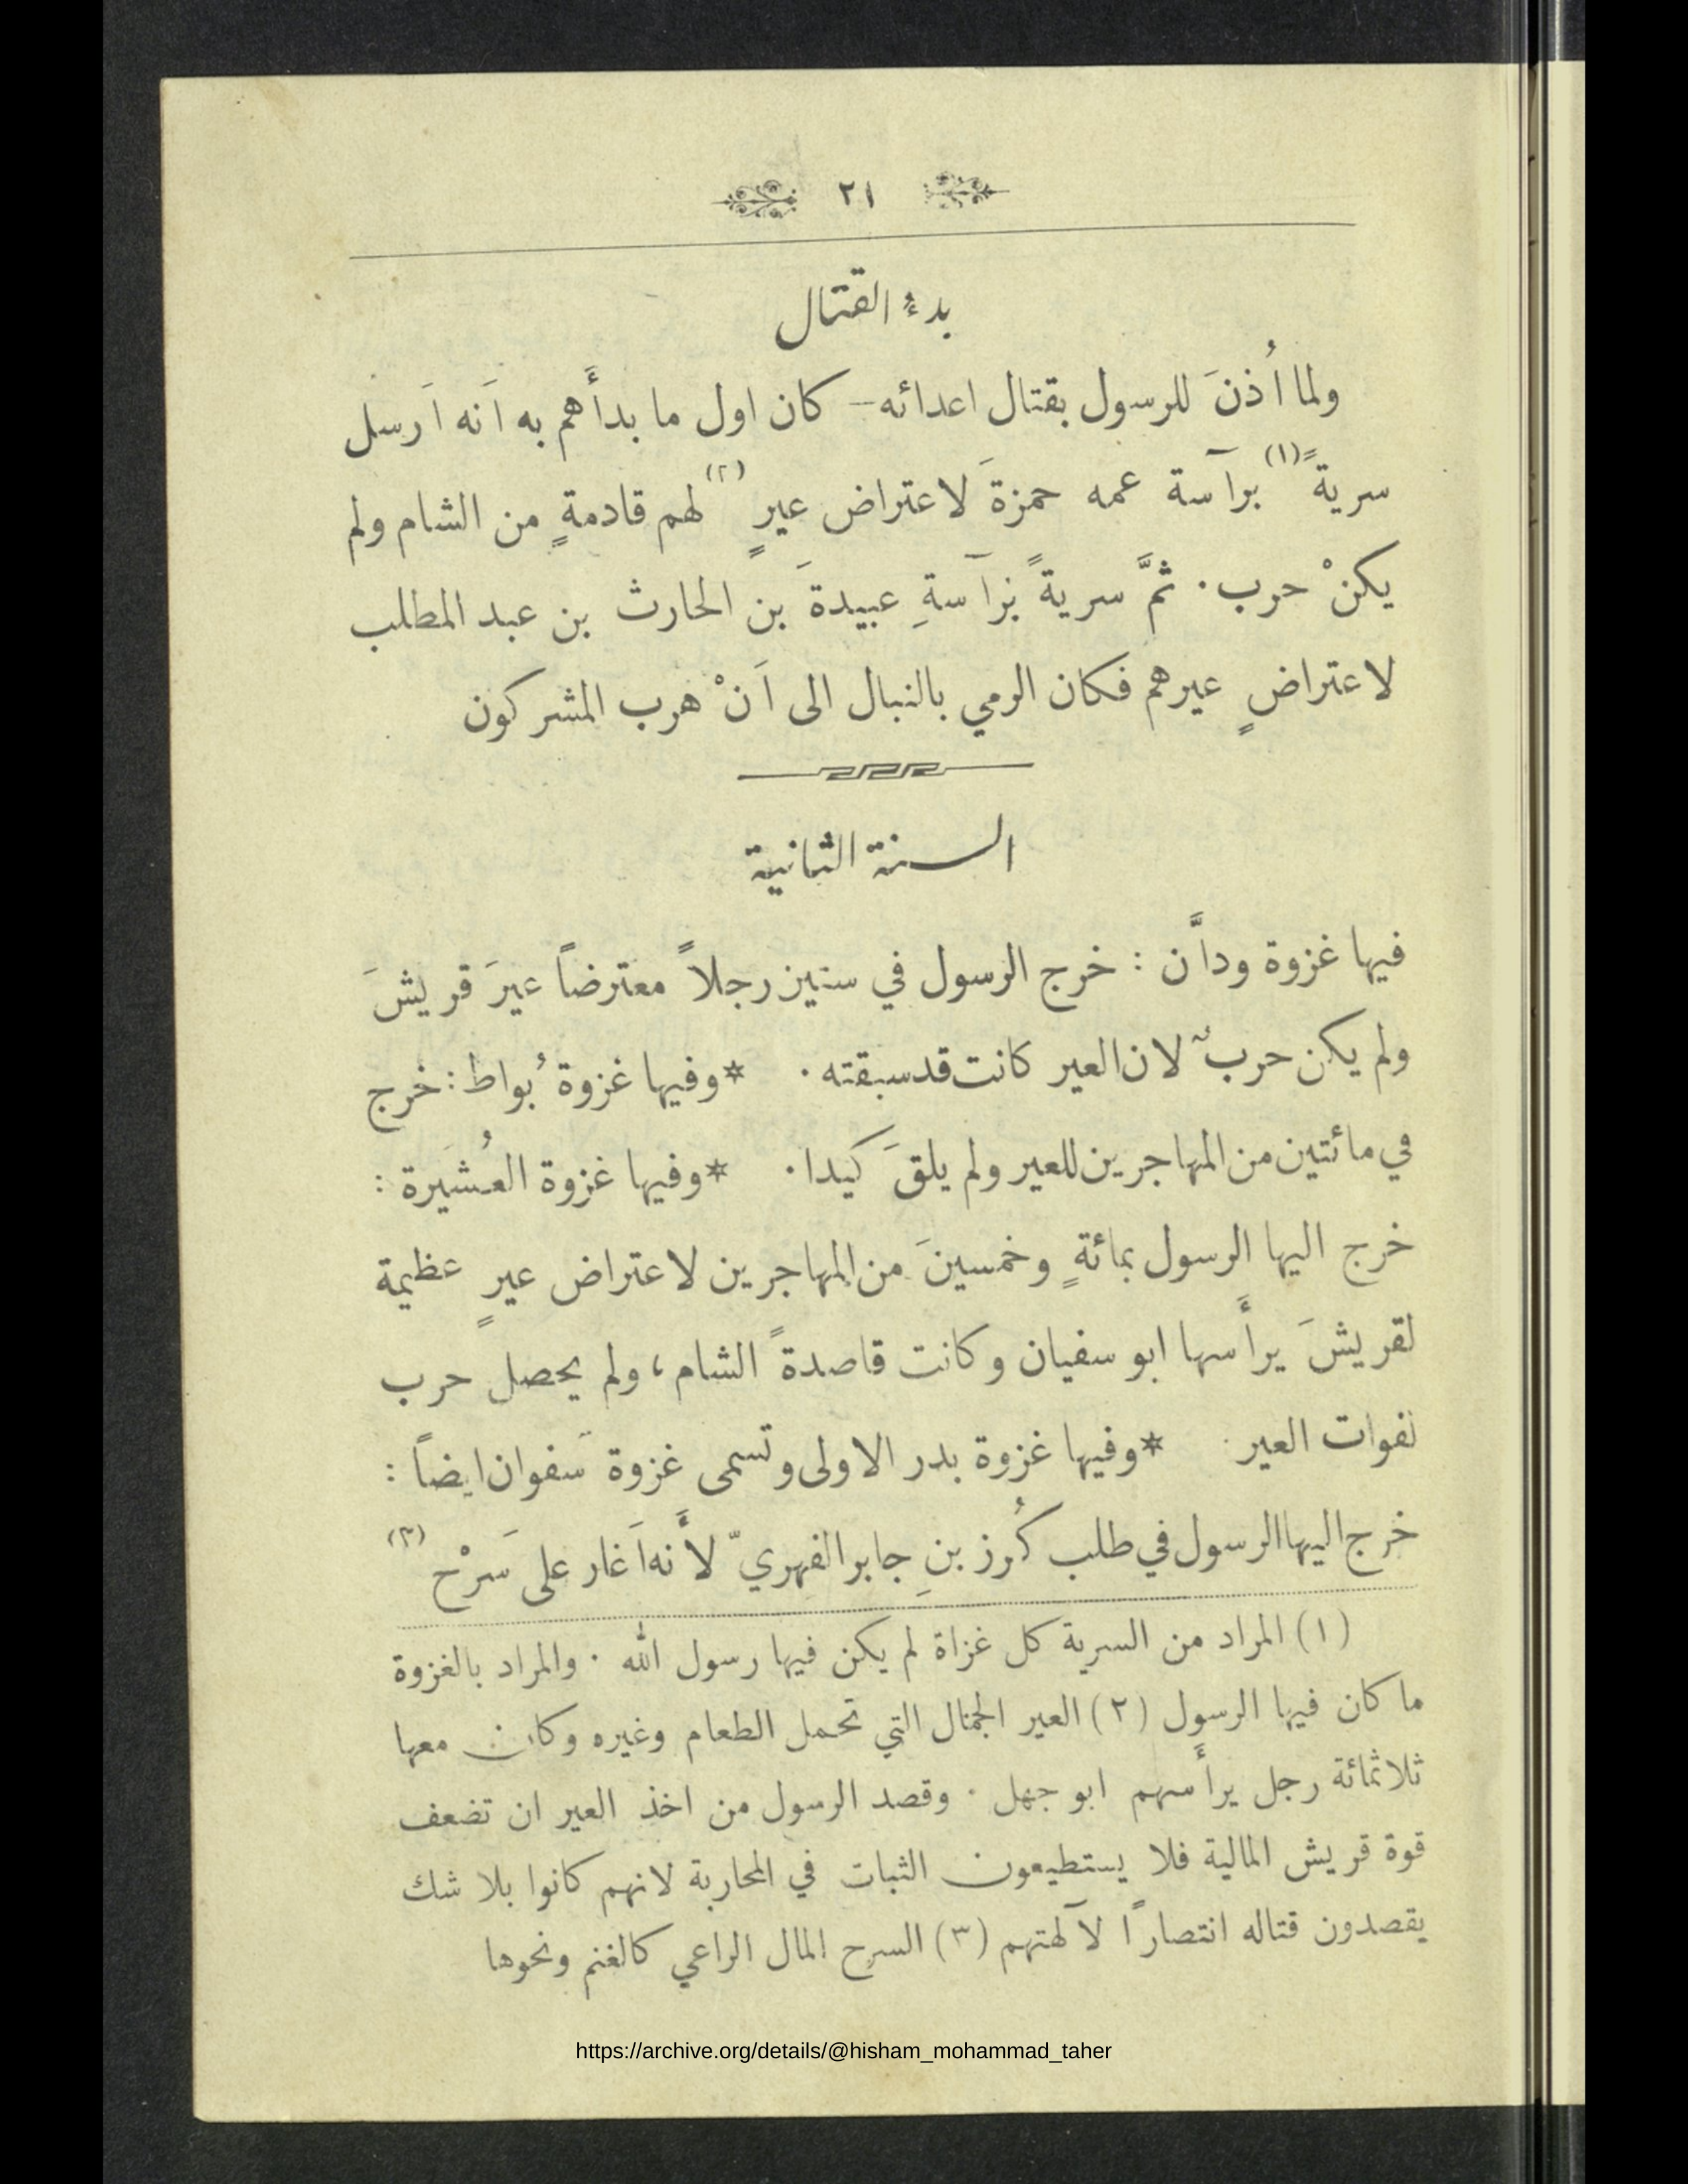 ٢١
بدءُ القتال
ولما اُذنَ للرسول بقتال اعدائه — كان اول ما بدأَهم به اَنه اَرسل
سريةً (١) برآسة عمه حمزةَ لاعتراض عيرٍ (٢) لهم قادمةٍ من الشام ولم
يكنْ حرب . ثمَّ سريةً برآسةِ عبيدةَ بن الحارث بن عبد المطلب
لاعتراضٍ عيرهم فكان الرمي بالنبال الى اَنْ هرب المشركون
السنة الثانية
فيها غزوة ودَّان : خرج الرسول في ستين رجلاً معترضاً عيرَ قريشَ
ولم يكن حربٌ لان العير كانت قد سبقته . *وفيها غزوة بُواط : خرج
في مائتين من المهاجرين للعير ولم يلقَ كيدا . *وفيها غزوة العُشَيرة :
خرج اليها الرسول بمائةٍ وخمسينَ من المهاجرين لاعتراض عيرٍ عظيمة
لقريشَ يرأَسها ابو سفيان وكانت قاصدةً الشام ، ولم يحصل حرب
لفوات العير . *وفيها غزوة بدر الاولى وتسمى غزوة سَفوان ايضاً :
خرج اليها الرسول في طلب كُرز بنِ جابر الفهريّ لأَنه اَغار على سَرْح (٣)
(١) المراد من السرية كل غزاة لم يكن فيها رسول الله . والمراد بالغزوة
ما كان فيها الرسول (٢) العير الجمال التي تحمل الطعام وغيره وكان معها
ثلاثمائة رجل يرأَسهم ابو جهل . وقصد الرسول من اخذ العير ان تضعف
قوة قريش المالية فلا يستطيعون الثبات في المحاربة لانهم كانوا بلا شك
يقصدون قتاله انتصاراً لآلهتهم (٣) السرح المال الراعي كالغنم ونحوها
https://archive.org/details/@hisham_mohammad_taher